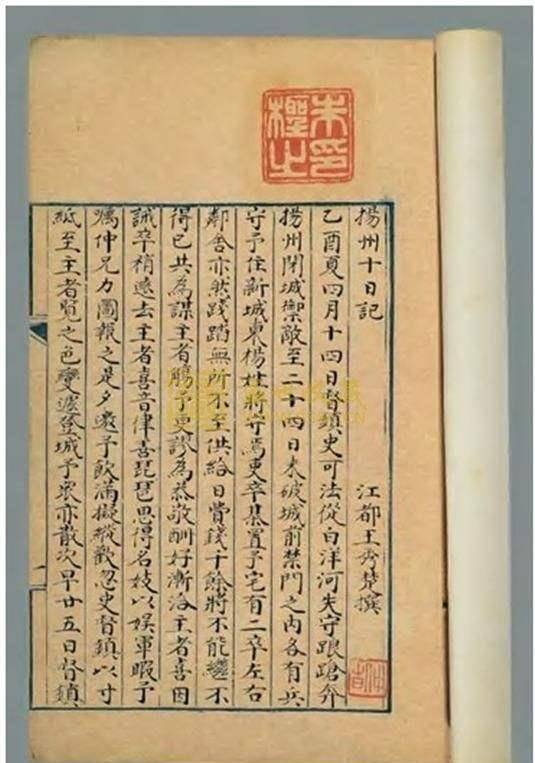 朱檉之印
揚州十日記
江都王秀楚撰
乙酉夏四月十四日督鎮史可法從白洋河失守踉蹌奔
揚州閉城禦敵至二十四日未破城前禁門之內各有兵
守予住新城東楊姓將守焉吏卒棊置予宅有二卒左右
鄰舍亦然踐踏無所不至供給日費錢千餘將不能繼不
得已共為謀主者觴予更謬為恭敬酬好漸洽主者喜因
誡卒稍遠去主者喜音律善琵琶思得名妓以娛軍暇予
囑仲兄力圖報之是夕邀予飲滿擬縱歡忽史督鎮以寸
紙至主者覽之色變遽登城予眾亦散次早廿五日督鎮